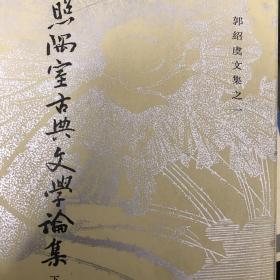 郭绍虞文集之一
照隅室古典文學論集
下